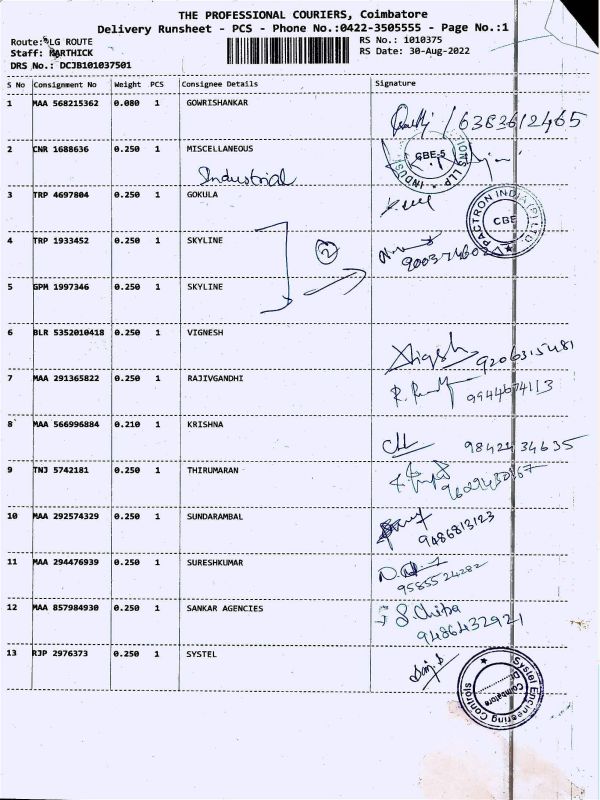 THE PROFESSIONAL COURIERS, Coimbatore
Delivery Runsheet - PCS - Phone No.:0422-3505555 - Page No.:1
Route: LG ROUTE
RS No.: 1010375
Staff: KARTHICK
RS Date: 30-Aug-2022
DRS No.: DCJB101037501
S No Consignment No Weight PCS Consignee Details Signature
1 MAA 568215362 0.080 1 GOWRISHANKAR
6383612465
2 CNR 1688636 0.250 1 MISCELLANEOUS
CBE-5
Industrial
3 TRP 4697804 0.250 1 GOKULA
PACTRON INDIA (P) LTD.
CBE
4 TRP 1933452 0.250 1 SKYLINE
2
5 GPM 1997346 0.250 1 SKYLINE
6 BLR 5352010418 0.250 1 VIGNESH
9206315481
7 MAA 291365822 0.250 1 RAJIVGANDHI
9944674113
8 MAA 566996884 0.210 1 KRISHNA
98424 34635
9 TNJ 5742181 0.250 1 THIRUMARAN
10 MAA 292574329 0.250 1 SUNDARAMBAL
9486813123
11 MAA 294476939 0.250 1 SURESHKUMAR
9585524282
12 MAA 857984930 0.250 1 SANKAR AGENCIES
S. Chitra
9486432921
13 RJP 2976373 0.250 1 SYSTEL
Systel Engineering Controls
Coimbatore